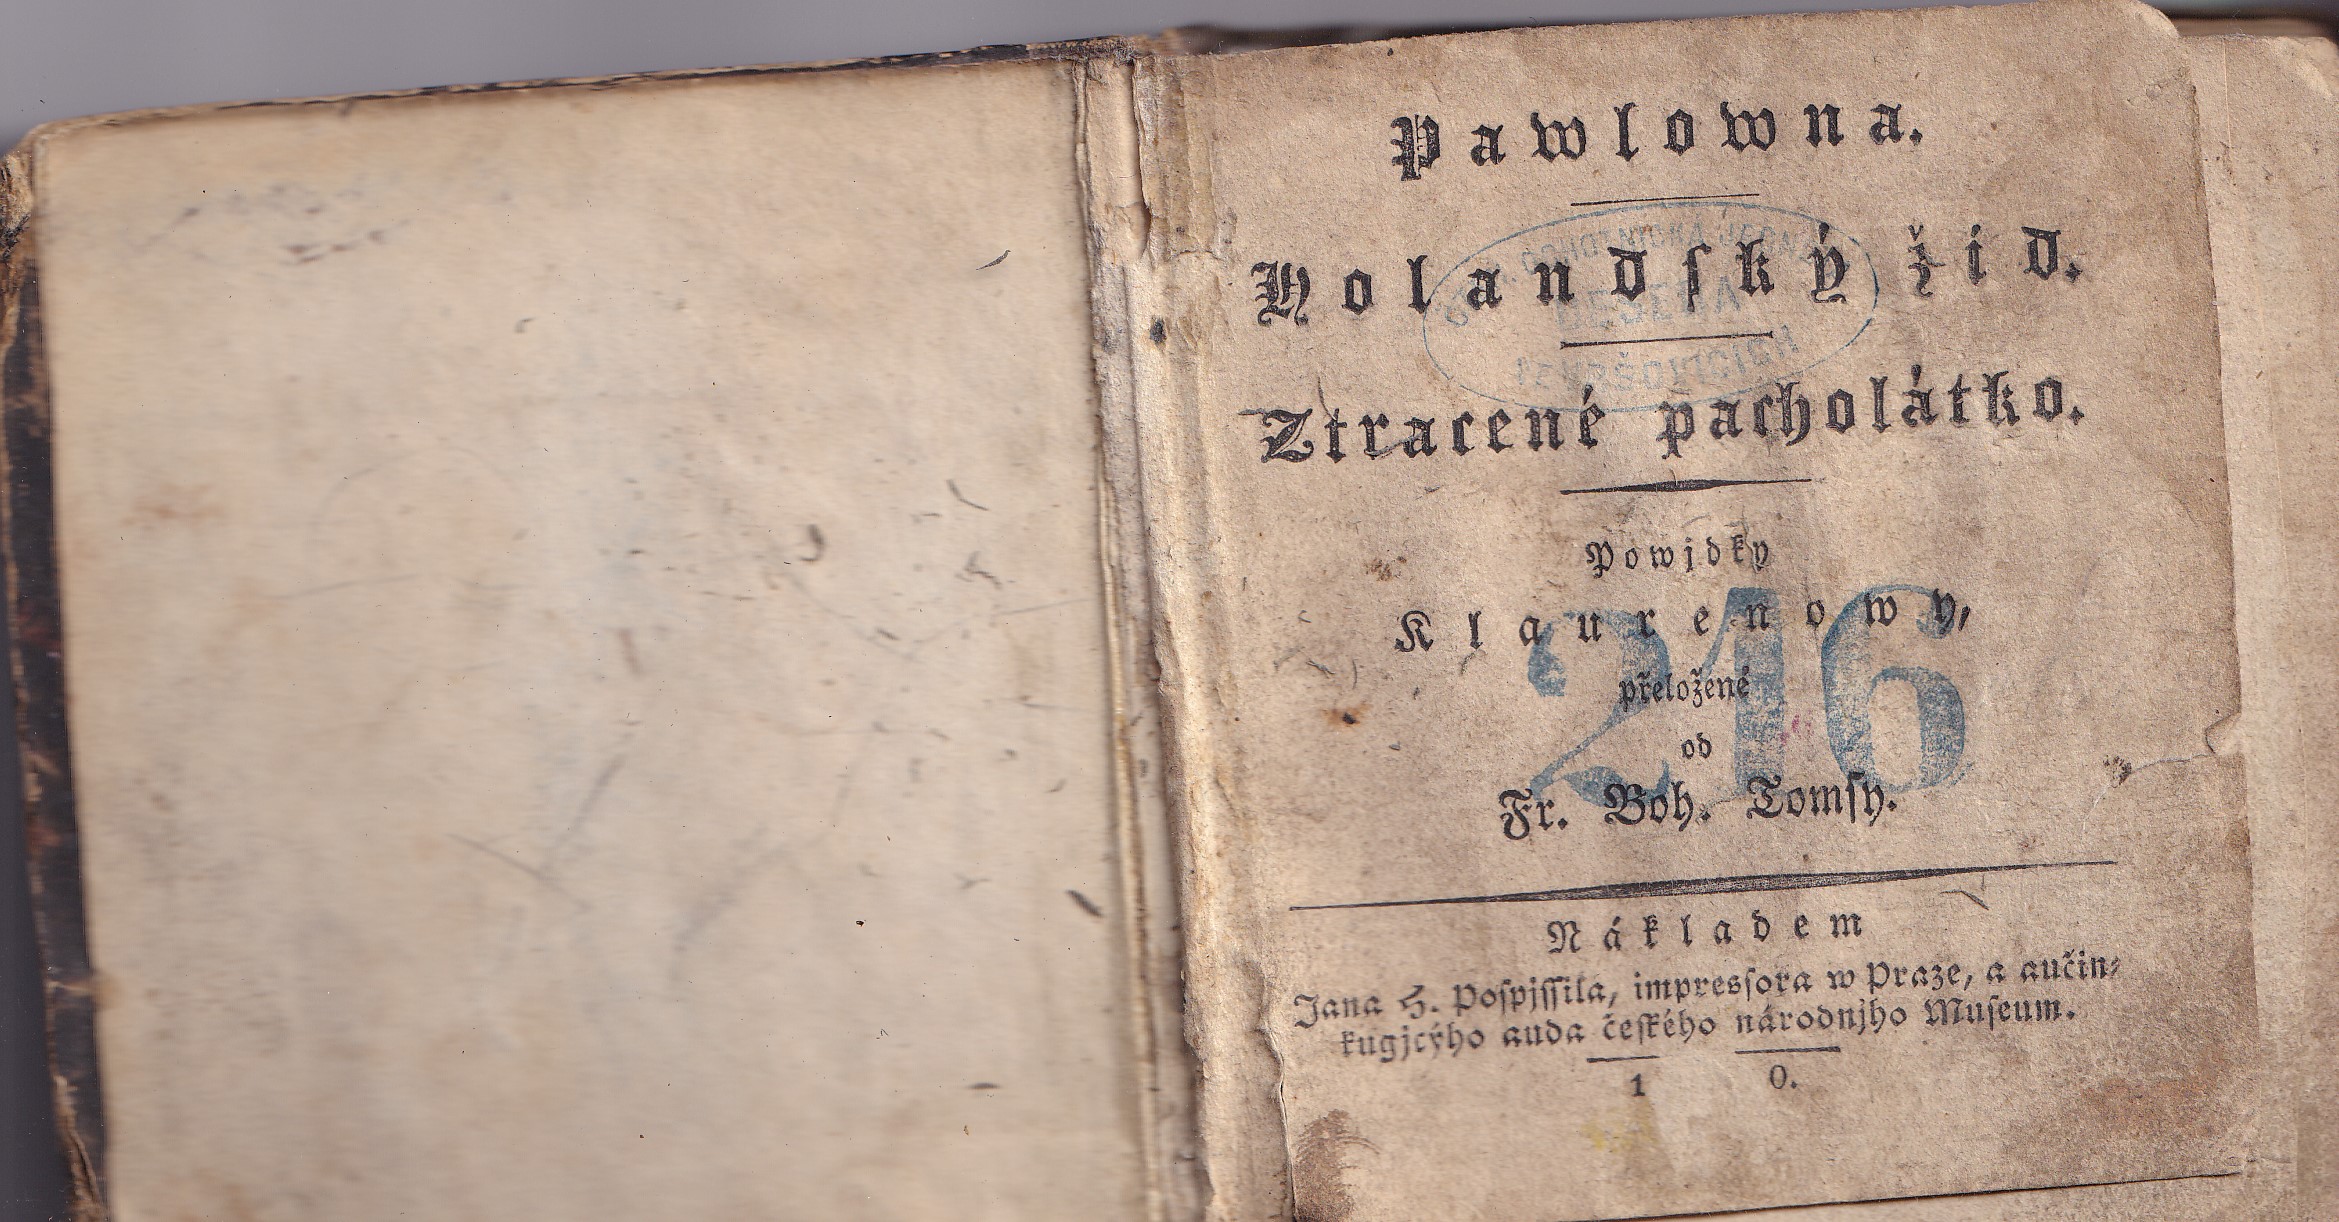 Pawlowna.
Holandſký žid.
Ztracené pacholátko.
Powjdky
Klaurenowy,
přeložené
od
216
Fr. Boh. Tomſy.
Nákladem
Jana H. Poſpjſſila, impresſora w Praze, a aučin⸗
kugjcýho auda čeſkého národnjho Muſeum.
1 0.